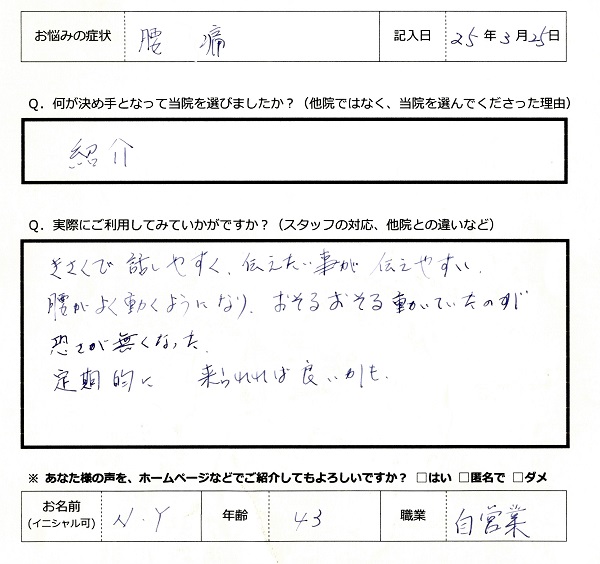 お悩みの症状 腰痛 記入日 25年3月25日
Q．何が決め手となって当院を選びましたか？（他院ではなく、当院を選んでくださった理由）
紹介
Q．実際にご利用してみていかがですか？（スタッフの対応、他院との違いなど）
きさくで 話しやすく、伝えたい事が 伝えやすい、
腰が よく動くようになり、おそるおそる動いていたのが
恐さが無くなった、
定期的に 来られれば良いかも、
※ あなた様の声を、ホームページなどでご紹介してもよろしいですか？ □はい □匿名で □ダメ
お名前 N.Y 年齢 43 職業 自営業
(イニシャル可)